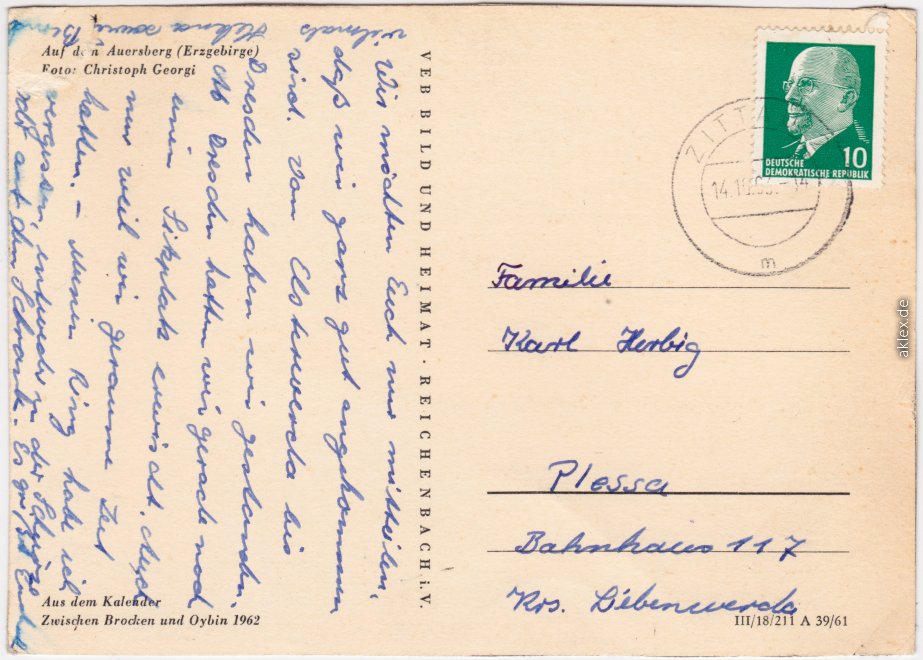 Auf dem Auersberg (Erzgebirge)
Foto: Christoph Georgi
Wir möchten Euch nur mitteilen,
daß wir ganz gut angekommen
sind. Von Elsterwerda bis
Dresden haben wir gestanden.
Ab Dresden hatten wir gerade noch
einen Sitzplatz erwischt, auch
nur weil wir geraume Zeit
hatten. – Meinen Ring habe ich
vergessen, entweder in der
oder auf dem Schrank. Es grüßt Euch
vielmals
Helena sowie
Bernd
VEB BILD UND HEIMAT · REICHENBACH i. V.
Aus dem Kalender
Zwischen Brocken und Oybin 1962
10
DEUTSCHE
DEMOKRATISCHE REPUBLIK
ZITTAU
m
Familie
Karl Herbig
Plessa
Bahnhaus 117
Krs. Liebenwerda
III/18/211 A 39/61
aklex.de